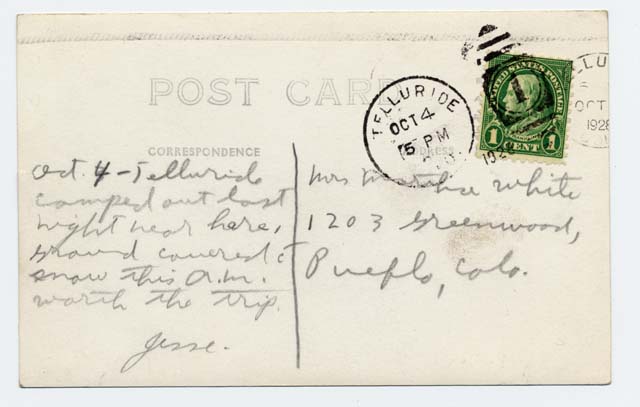 POST CARD
TELLURIDE
OCT 4
5 PM
192
UNITED STATES POSTAGE
1 CENT 1
LLU
OCT
1928
CORRESPONDENCE
ADDRESS
Oct. 4 - Telluride
camped out last
night near here,
ground covered c
snow this A.M.
worth the trip.
Jesse.
Mrs Martha White
1203 Greenwood,
Pueblo, Colo.